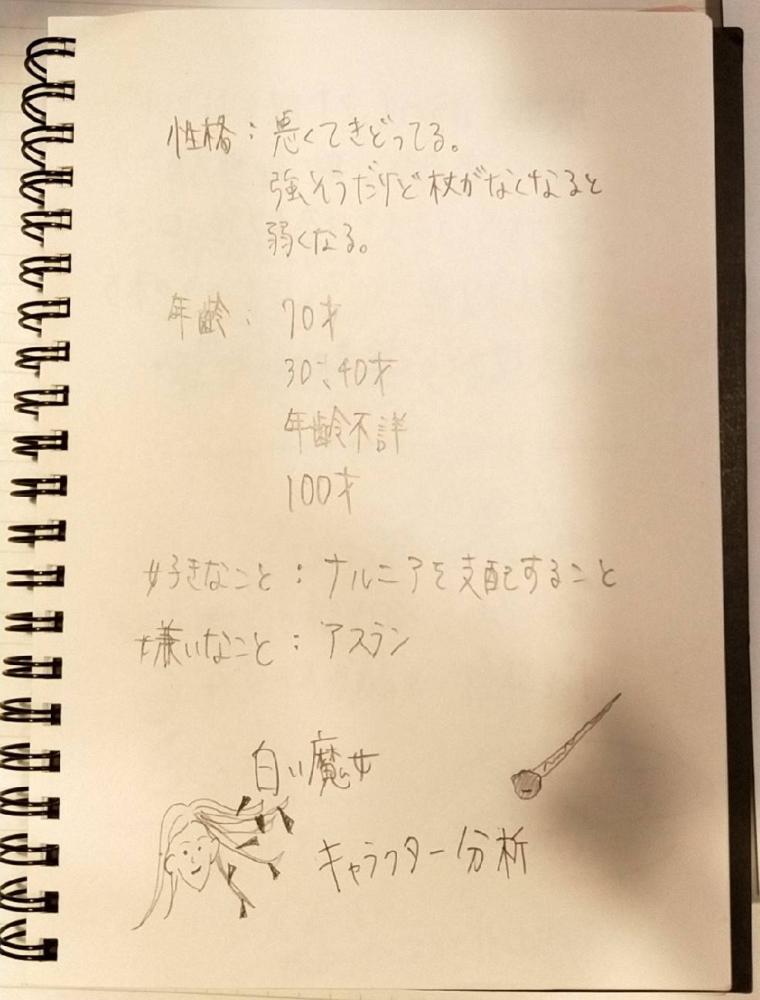 性格：悪くてきどってる。
強そうだけど杖がなくなると
弱くなる。
年齢：70才
30、40才
年齢不詳
100才
好きなこと：ナルニアを支配すること
嫌いなこと：アスラン
白い魔女
キャラクター分析